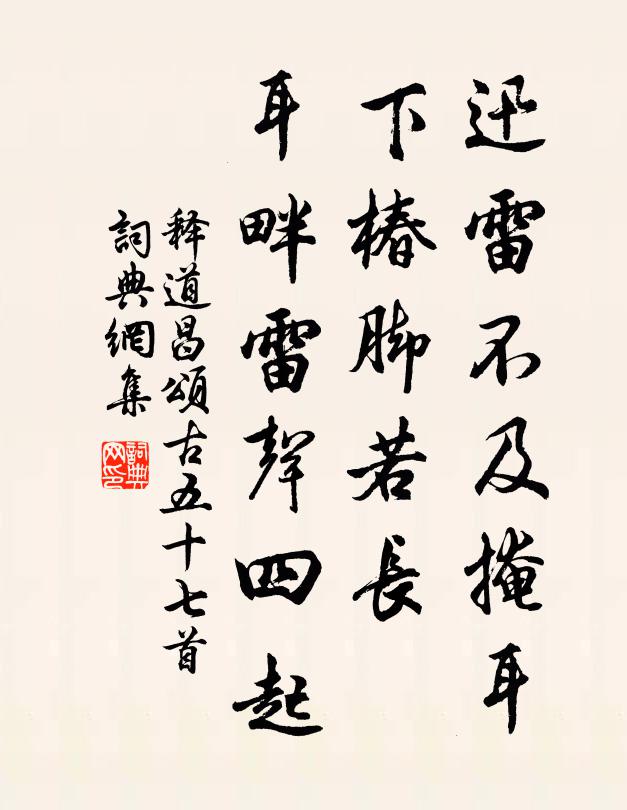 迅雷不及掩耳
下椿脚若長
耳畔雷聲四起
释道昌頌古五十七首
詞典網集
詞典网印